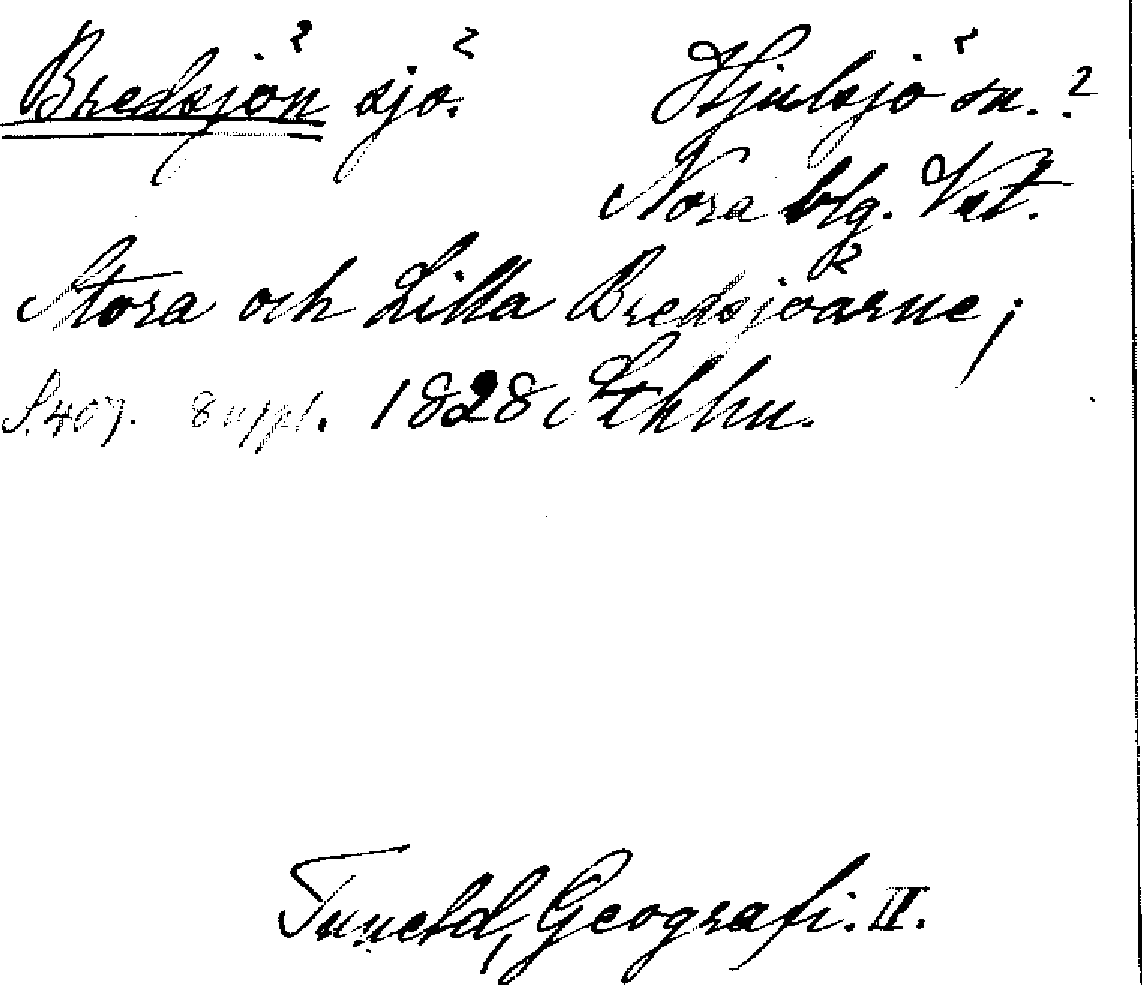 Bredsjön sjö. Hjulsjö sn.?
Nora blg. Vstl.
Stora och Lilla Bredsjöarne;
S. 407. 8 uppl. 1828 Sthlm.
Tuneld, Geografi. II.